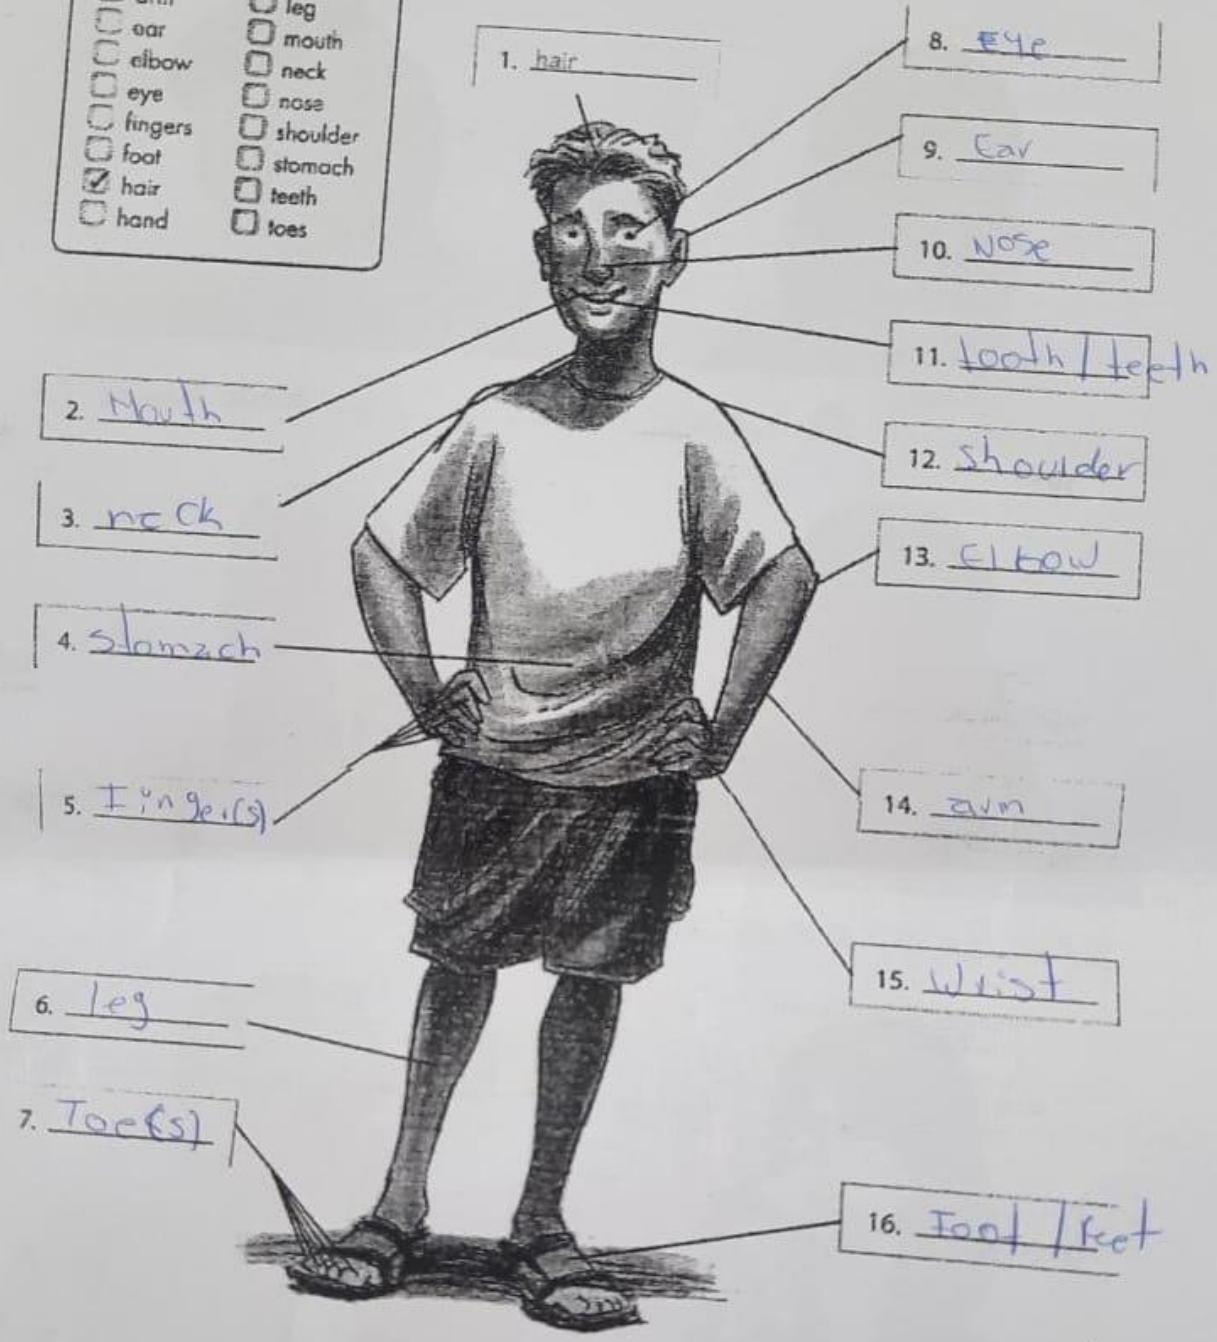 ear
elbow
eye
fingers
foot
hair
hand
leg
mouth
neck
nose
shoulder
stomach
teeth
toes
1. hair
2. Mouth
3. neck
4. stomach
5. Finger(s)
6. leg
7. Toe(s)
8. Eye
9. Ear
10. Nose
11. tooth / teeth
12. shoulder
13. Elbow
14. arm
15. Wrist
16. Foot / Feet